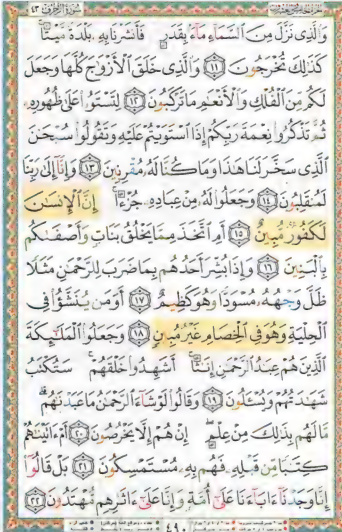 سُورَةُ الزُّخْرُفِ ٤٣
وَالَّذِي نَزَّلَ مِنَ السَّمَاءِ مَاءً بِقَدَرٍ فَأَنشَرْنَا بِهِ بَلْدَةً مَّيْتًا
كَذَٰلِكَ تُخْرَجُونَ ١١ وَالَّذِي خَلَقَ الْأَزْوَاجَ كُلَّهَا وَجَعَلَ
لَكُم مِّنَ الْفُلْكِ وَالْأَنْعَامِ مَا تَرْكَبُونَ ١٢ لِتَسْتَوُوا عَلَىٰ ظُهُورِهِ
ثُمَّ تَذْكُرُوا نِعْمَةَ رَبِّكُمْ إِذَا اسْتَوَيْتُمْ عَلَيْهِ وَتَقُولُوا سُبْحَانَ
الَّذِي سَخَّرَ لَنَا هَٰذَا وَمَا كُنَّا لَهُ مُقْرِنِينَ ١٣ وَإِنَّا إِلَىٰ رَبِّنَا
لَمُنقَلِبُونَ ١٤ وَجَعَلُوا لَهُ مِنْ عِبَادِهِ جُزْءًا إِنَّ الْإِنسَانَ
لَكَفُورٌ مُّبِينٌ ١٥ أَمِ اتَّخَذَ مِمَّا يَخْلُقُ بَنَاتٍ وَأَصْفَاكُم
بِالْبَنِينَ ١٦ وَإِذَا بُشِّرَ أَحَدُهُم بِمَا ضَرَبَ لِلرَّحْمَٰنِ مَثَلًا
ظَلَّ وَجْهُهُ مُسْوَدًّا وَهُوَ كَظِيمٌ ١٧ أَوَمَن يُنَشَّؤُا فِي
الْحِلْيَةِ وَهُوَ فِي الْخِصَامِ غَيْرُ مُبِينٍ ١٨ وَجَعَلُوا الْمَلَائِكَةَ
الَّذِينَ هُمْ عِبَادُ الرَّحْمَٰنِ إِنَاثًا أَشَهِدُوا خَلْقَهُمْ سَتُكْتَبُ
شَهَادَتُهُمْ وَيُسْأَلُونَ ١٩ وَقَالُوا لَوْ شَاءَ الرَّحْمَٰنُ مَا عَبَدْنَاهُم
مَّا لَهُم بِذَٰلِكَ مِنْ عِلْمٍ إِنْ هُمْ إِلَّا يَخْرُصُونَ ٢٠ أَمْ آتَيْنَاهُمْ
كِتَابًا مِّن قَبْلِهِ فَهُم بِهِ مُسْتَمْسِكُونَ ٢١ بَلْ قَالُوا
إِنَّا وَجَدْنَا آبَاءَنَا عَلَىٰ أُمَّةٍ وَإِنَّا عَلَىٰ آثَارِهِم مُّهْتَدُونَ ٢٢
٤٩٠